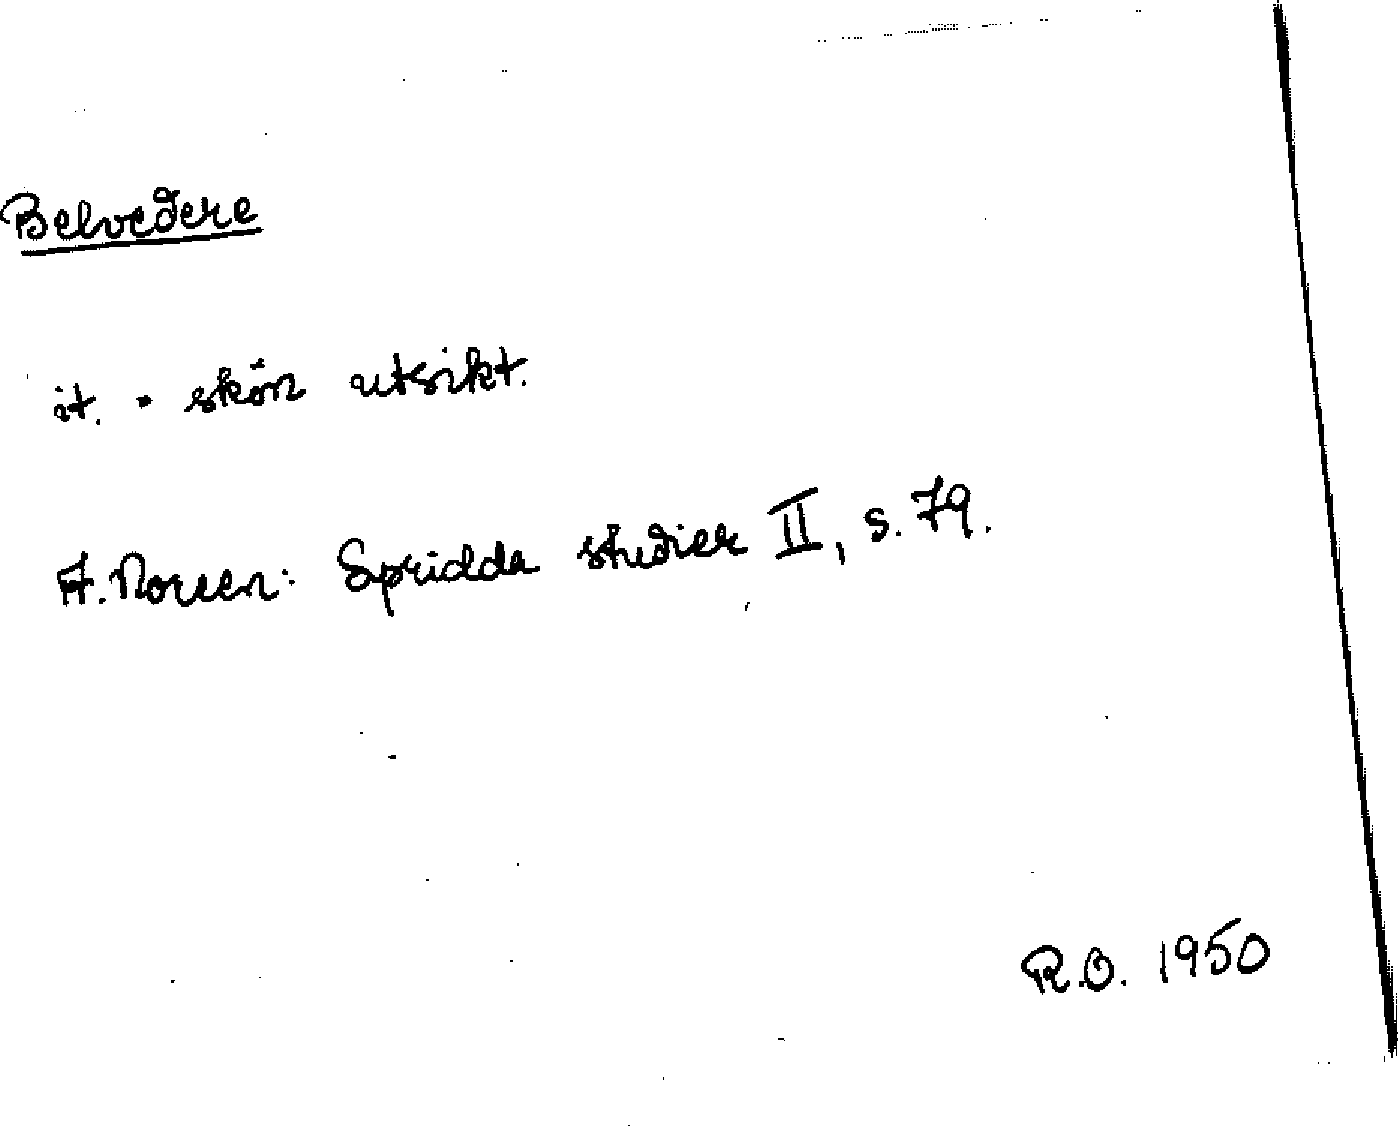 Belvedere
it. = skön utsikt.
A. Noreen: Spridda studier II, s. 79.
R.O. 1950